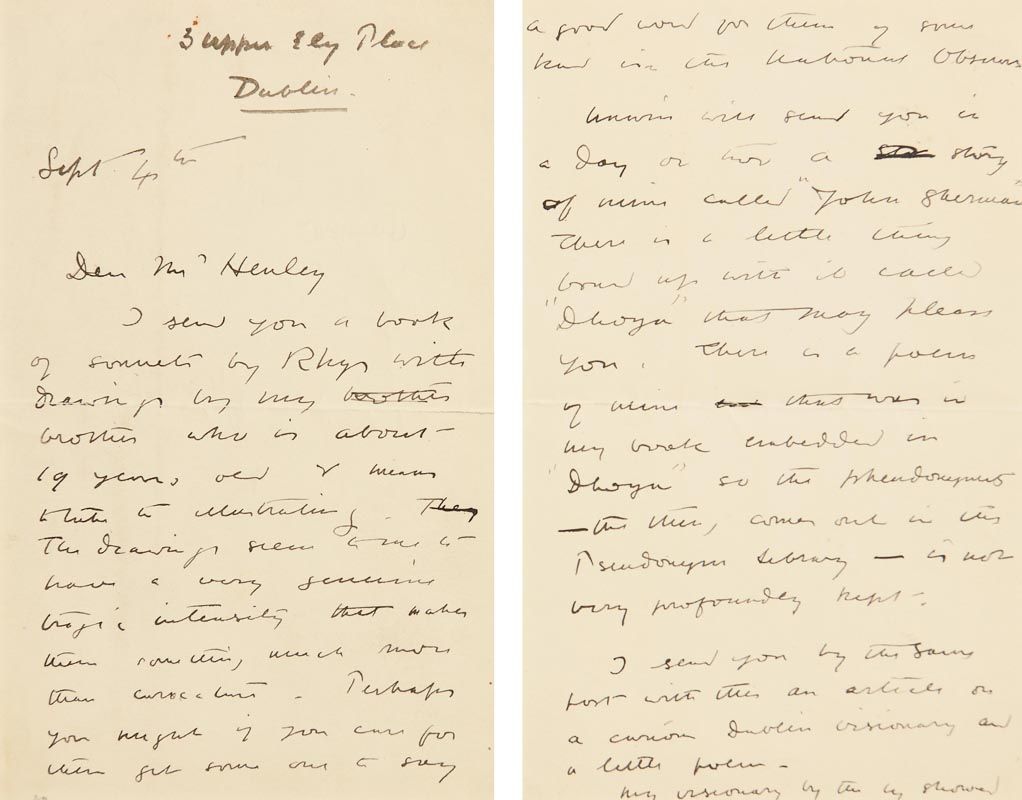 3 Upper Ely Place
Dublin.
Sept 4th
Dear Mr Henley
I send you a book
of sonnets by Rhys with
drawings by my brother
brother who is about
19 years old & means
to take to illustrating. They
The drawings seem to me to
have a very genuine
tragic intensity that makes
them something much more
than caricature. Perhaps
you might if you care for
them get some one to say
a good word for them of some
kind in the National Observer
Unwin will send you in
a day or two a story
of mine called "John Sherman"
There is a little thing
bound up with it called
"Dhoya" that may please
you. There is a poem
of mine that was in
my book embedded in
"Dhoya" so the pseudonymity
— the thing comes out in the
Pseudonym Library — is not
very profoundly kept.
I send you by the same
post with this an article on
a curious Dublin visionary and
a little poem.
My visionary by the by showed